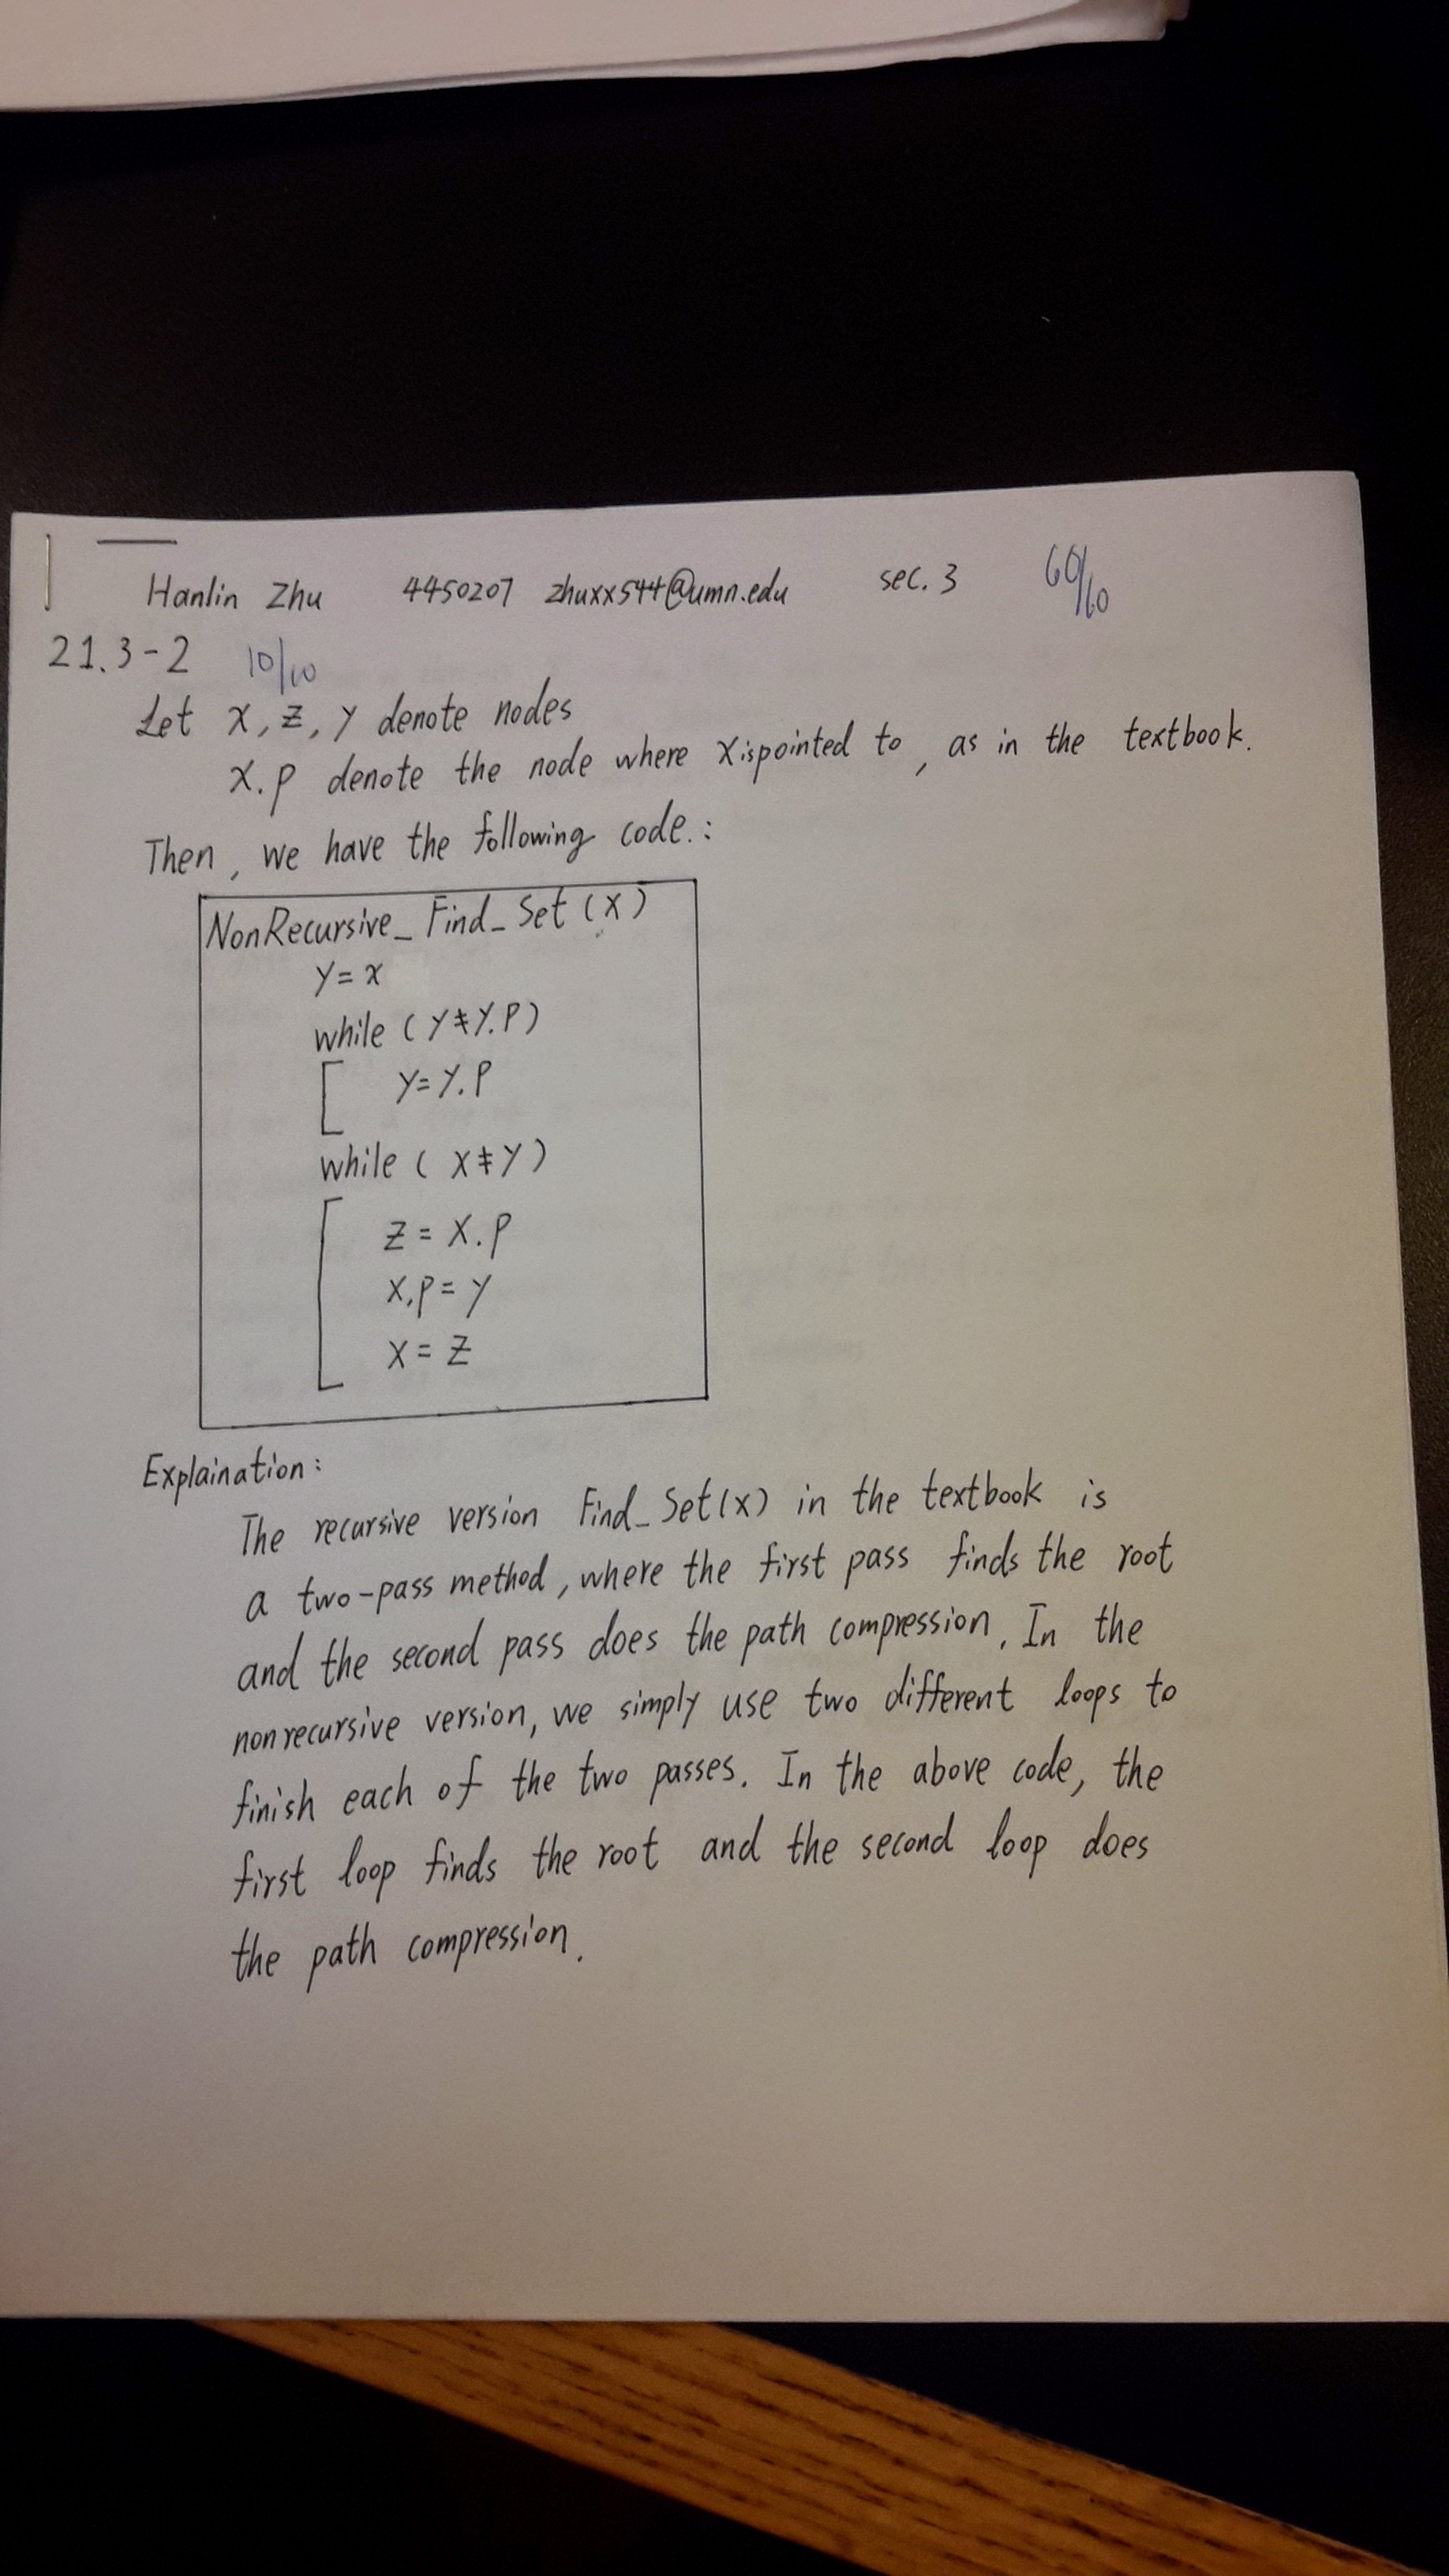 Hanlin Zhu 4450207 zhuxx544@umn.edu sec. 3 60/60
21.3-2 10/10
Let x, z, y denote nodes
x.p denote the node where x is pointed to, as in the textbook.
Then, we have the following code.:
NonRecursive_Find_Set(x)
y=x
while (y≠y.p)
y=y.p
while (x≠y)
z=x.p
x.p=y
x=z
Explaination:
The recursive version Find_Set(x) in the textbook is
a two-pass method, where the first pass finds the root
and the second pass does the path compression. In the
nonrecursive version, we simply use two different loops to
finish each of the two passes. In the above code, the
first loop finds the root and the second loop does
the path compression.